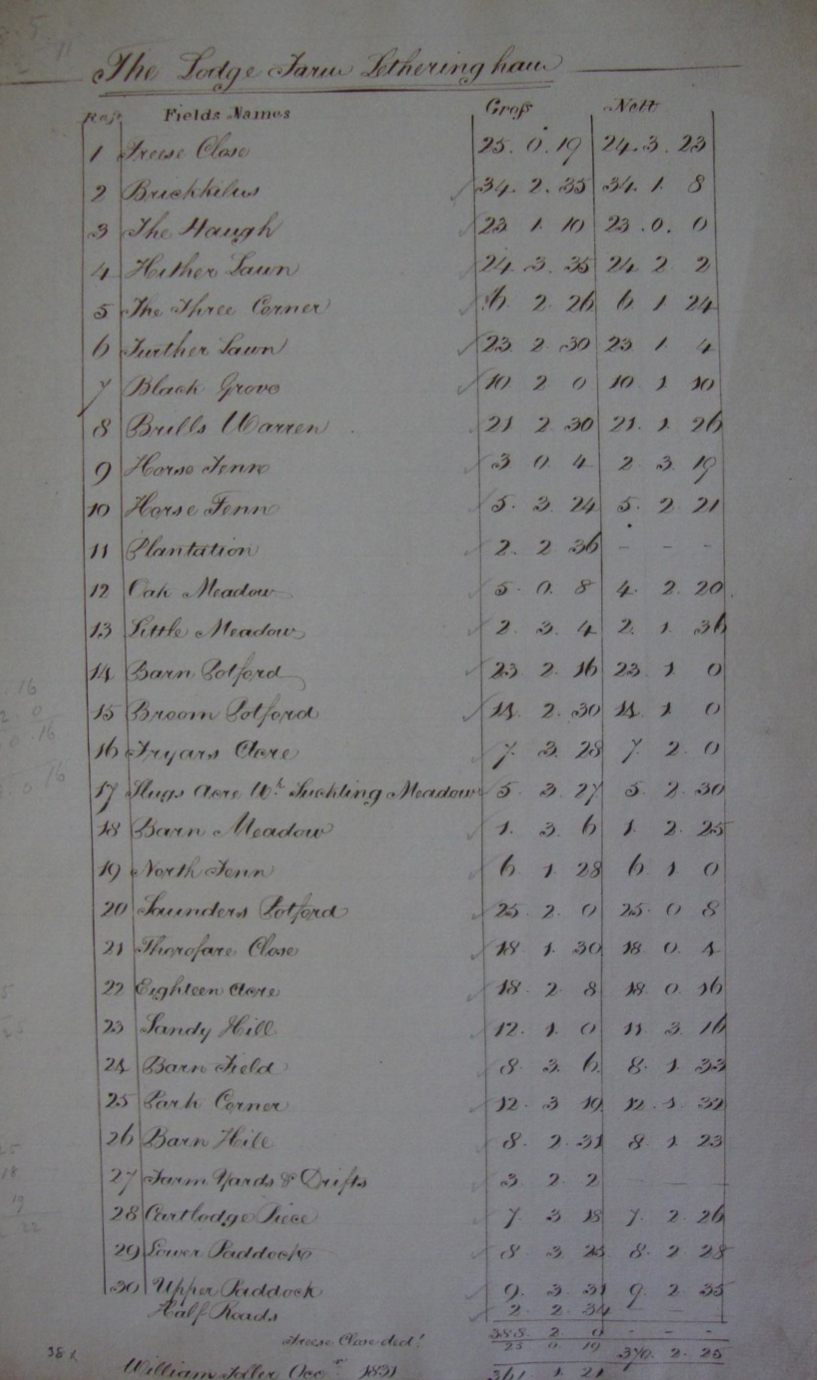 The Lodge Farm Letheringham
Ref. Fields Names Gross Nett
1 Freese Close 25. 0. 19 24. 3. 23
2 Brickkilns 34. 2. 35 34. 1. 8
3 The Haugh 23 1 10 23. 0. 0
4 Hither Lawn 24. 3. 35 24 2 2
5 The Three Corner 6 2 26 6 1 24
6 Further Lawn 23. 2. 30 23 1 4
7 Black Grove 10 2 0 10 1 10
8 Brills Warren 21 2 30 21. 1. 26
9 Horse Fenn 3 0 4 2 3 19
10 Horse Fenn 5. 3. 24 5. 2 21
11 Plantation 2. 2 36 - - -
12 Oak Meadow 5. 0. 8 4. 2. 20
13 Little Meadow 2 3. 4 2. 1 36
14 Barn Potford 23 2 16 23 1 0
15 Broom Potford 14 2. 30 14 1 0
16 Fryars Acre 7. 3. 28 7. 2. 0
17 Slugs Acre Wh. Suckling Meadow 5. 3. 27 5. 2. 30
18 Barn Meadow 1. 3 6 1. 2. 25
19 North Fenn 6 1 28 6 1 0
20 Saunders Potford 25. 2 0 25. 0 8
21 Thorofare Close 18 1. 30 18 0. 4
22 Eighteen Acre 18. 2. 8 18. 0. 16
23 Sandy Hill 12. 1. 0 11 3. 16
24 Barn Field 8. 3. 6. 8. 1 33
25 Park Corner 12. 3 19 12. 1 32
26 Barn Hill 8. 2. 31 8 1 23
27 Farm Yards & Drifts 3 2 2 - - -
28 Cartlodge Piece 7 3 18 7. 2. 26
29 Lower Paddock 8 3 25 8. 2 28
30 Upper Paddock 9. 3. 31 9 2. 35
Half Roads 2 2 34 - -
388 2 0 - - -
Freese Close ded! 25 0. 19 370. 2. 25
William Occr. 1831 361 1. 21